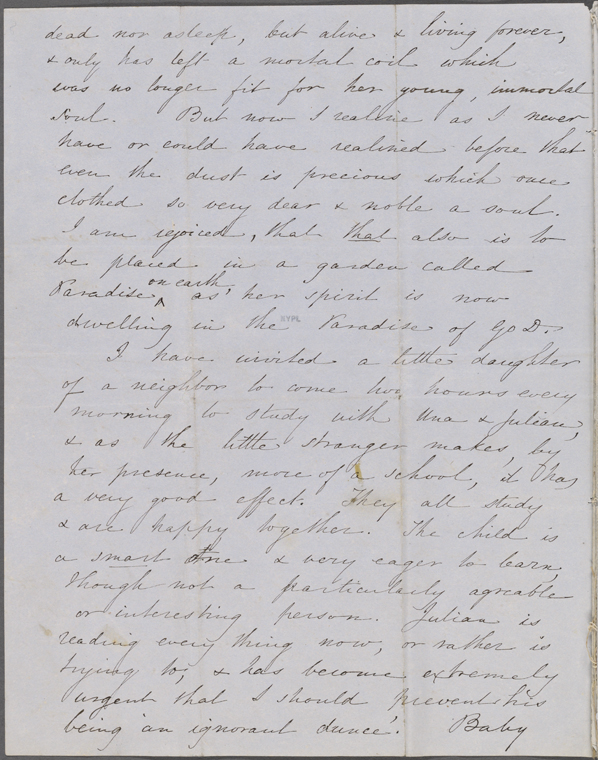 dead nor asleep, but alive & living forever,
& only has left a mortal coil which
was no longer fit for her young, immortal
soul. But now I realize as I never
have or could have realized before that
even the dust is precious which once
clothed so very dear & noble a soul.
I am rejoiced, that that also is to
be placed in a garden called
on earth
Paradise ^ as her spirit is now
NYPL
dwelling in the Paradise of GoD.
I have invited a little daughter
of a neighbor to come two hours every
morning to study with Una & Julian,
& as the little stranger makes, by
her presence, more of a school, it has
a very good effect. They all study
& are happy together. The child is
a smart one & very eager to learn,
though not a particularly agreable
or interesting person. Julian is
reading every thing now, or rather is
trying to, & has become extremely
urgent that I should prevent his
being 'an ignorant dunce'. Baby